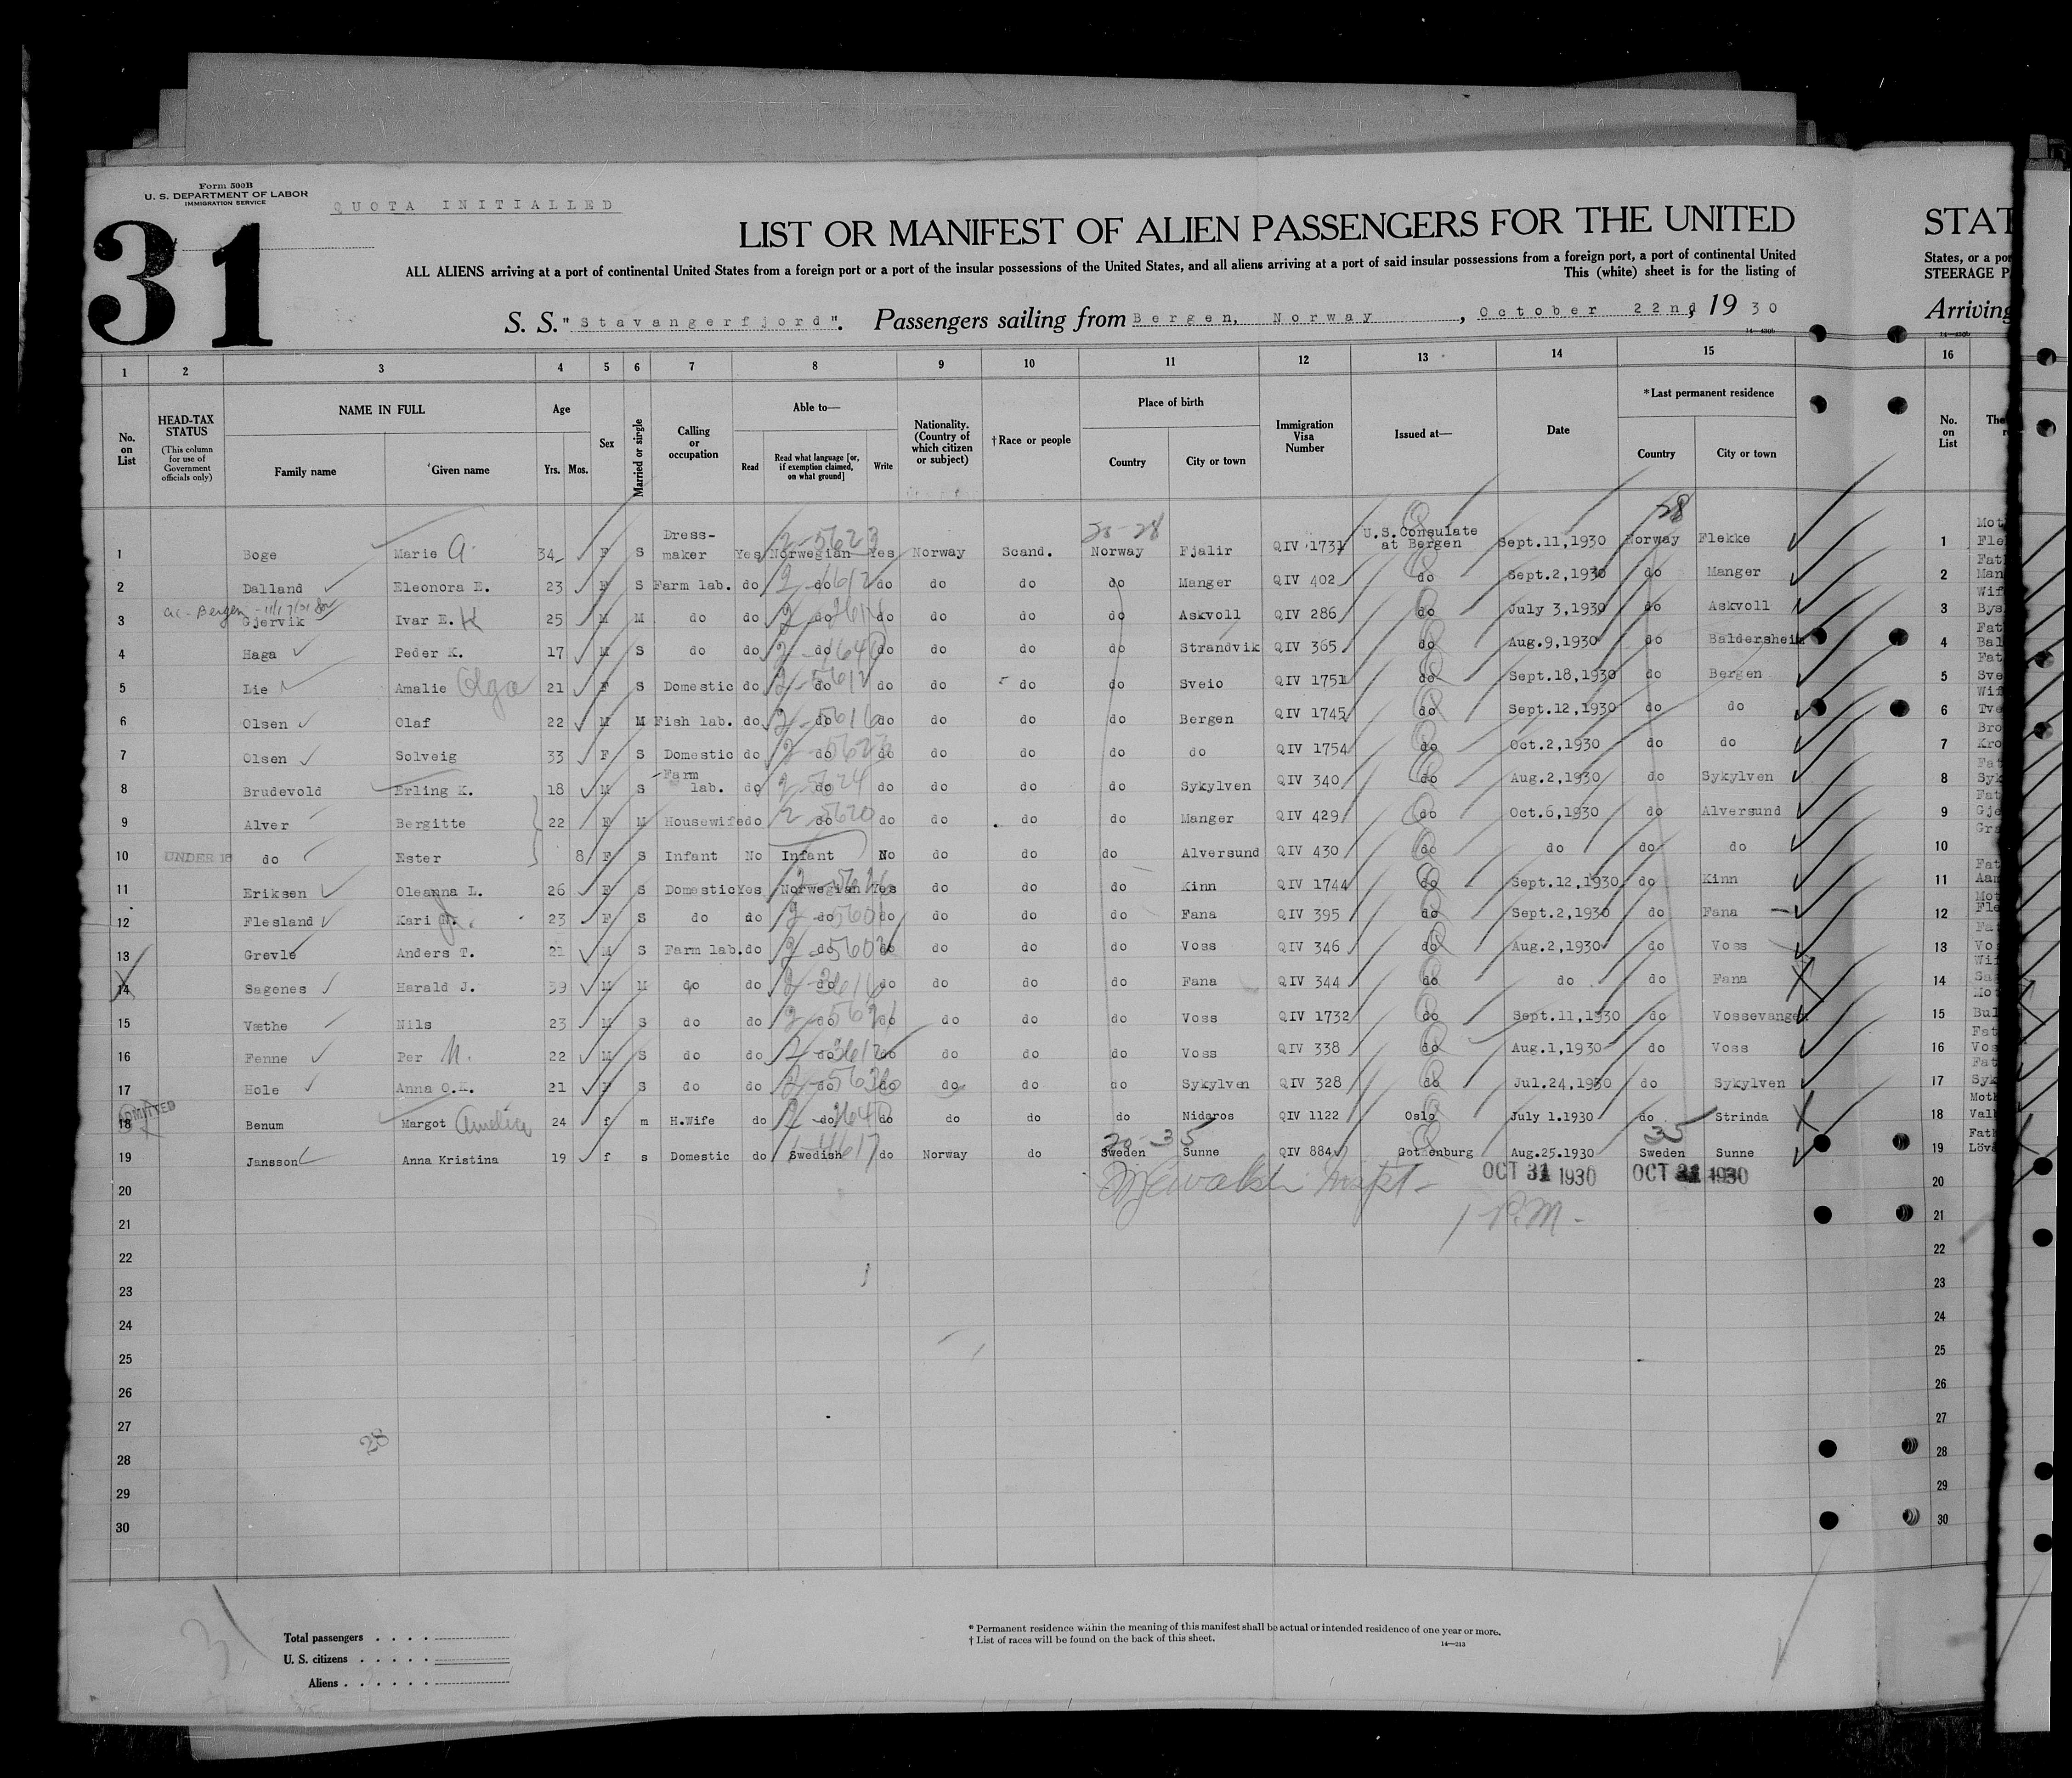 Form 500B
U. S. DEPARTMENT OF LABOR
IMMIGRATION SERVICE
QUOTA INITIALLED
31
LIST OR MANIFEST OF ALIEN PASSENGERS FOR THE UNITED STAT
ALL ALIENS arriving at a port of continental United States from a foreign port or a port of the insular possessions of the United States, and all aliens arriving at a port of said insular possessions from a foreign port, a port of continental United States, or a por
This (white) sheet is for the listing of STEERAGE P
S. S. "Stavangerfjord". Passengers sailing from Bergen, Norway, October 22nd, 1930 Arriving
14—430b
1 2 3 4 5 6 7 8 9 10 11 12 13 14 15 16
No. on List
HEAD-TAX STATUS
(This column for use of Government officials only)
NAME IN FULL
Family name Given name
Age
Yrs. Mos.
Sex
Married or single
Calling or occupation
Able to—
Read
Read what language [or, if exemption claimed, on what ground]
Write
Nationality. (Country of which citizen or subject)
†Race or people
Place of birth
Country City or town
Immigration Visa Number
Issued at—
Date
*Last permanent residence
Country City or town
No. on List
28
1 Boge Marie A. 34 F S Dress-maker Yes Norwegian Yes Norway Scand. Norway Fjalir QIV 1731 U.S. Consulate at Bergen Sept.11,1930 Norway Flekke 1
2 Dalland Eleonora E. 23 F S Farm lab. do do do do do do Manger QIV 402 do Sept.2,1930 do Manger 2
3 Gjervik Ivar E. K 25 M M do do do do do do do Askvoll QIV 286 do July 3,1930 do Askvoll 3
4 Haga Peder K. 17 M S do do do do do do do Strandvik QIV 365 do Aug.9,1930 do Baldersheim 4
5 Lie Amalie Olga 21 F S Domestic do do do do do do Sveio QIV 1751 do Sept.18,1930 do Bergen 5
6 Olsen Olaf 22 M M Fish lab. do do do do do do Bergen QIV 1745 do Sept.12,1930 do do 6
7 Olsen Solveig 33 F S Domestic do do do do do do do QIV 1754 do Oct.2,1930 do do 7
8 Brudevold Erling K. 18 M S Farm lab. do do do do do Sykylven QIV 340 do Aug.2,1930 do Sykylven 8
9 Alver Bergitte 22 F M Housewife do do do do do do Manger QIV 429 do Oct.6,1930 do Alversund 9
10 UNDER 16 do Ester 8 F S Infant No Infant No do do do Alversund QIV 430 do do do do 10
11 Eriksen Oleanna L. 26 F S Domestic Yes Norwegian Yes do do do Kinn QIV 1744 do Sept.12,1930 do Kinn 11
12 Flesland Kari 23 F S do do do do do do do Fana QIV 395 do Sept.2,1930 do Fana 12
13 Grevle Anders T. 21 M S Farm lab. do do do do do do Voss QIV 346 do Aug.2,1930 do Voss 13
14 Sagenes Harald J. 39 M M do do do do do do do Fana QIV 344 do do do Fana 14
15 Væthe Nils 23 M S do do do do do do do Voss QIV 1732 do Sept.11,1930 do Vossevangen 15
16 Fenne Per N. 22 M S do do do do do do do Voss QIV 338 do Aug.1,1930 do Voss 16
17 Hole Anna O.K. 21 F S do do do do do do do Sykylven QIV 328 do Jul.24,1930 do Sykylven 17
ADMITTED
18 Benum Margot Amelia 24 f m H.Wife do do do do do do Nidaros QIV 1122 Oslo July 1.1930 do Strinda 18
35
19 Jansson Anna Kristina 19 f s Domestic do Swedish do Norway do Sweden Sunne QIV 884 Gothenburg Aug.25.1930 Sweden Sunne 19
OCT 31 1930 OCT 31 1930
20 20
21 21
22 22
23 23
24 24
25 25
26 26
27 27
28
28 28
29 29
30 30
31
Total passengers
U. S. citizens
Aliens
* Permanent residence within the meaning of this manifest shall be actual or intended residence of one year or more.
† List of races will be found on the back of this sheet.
14—213